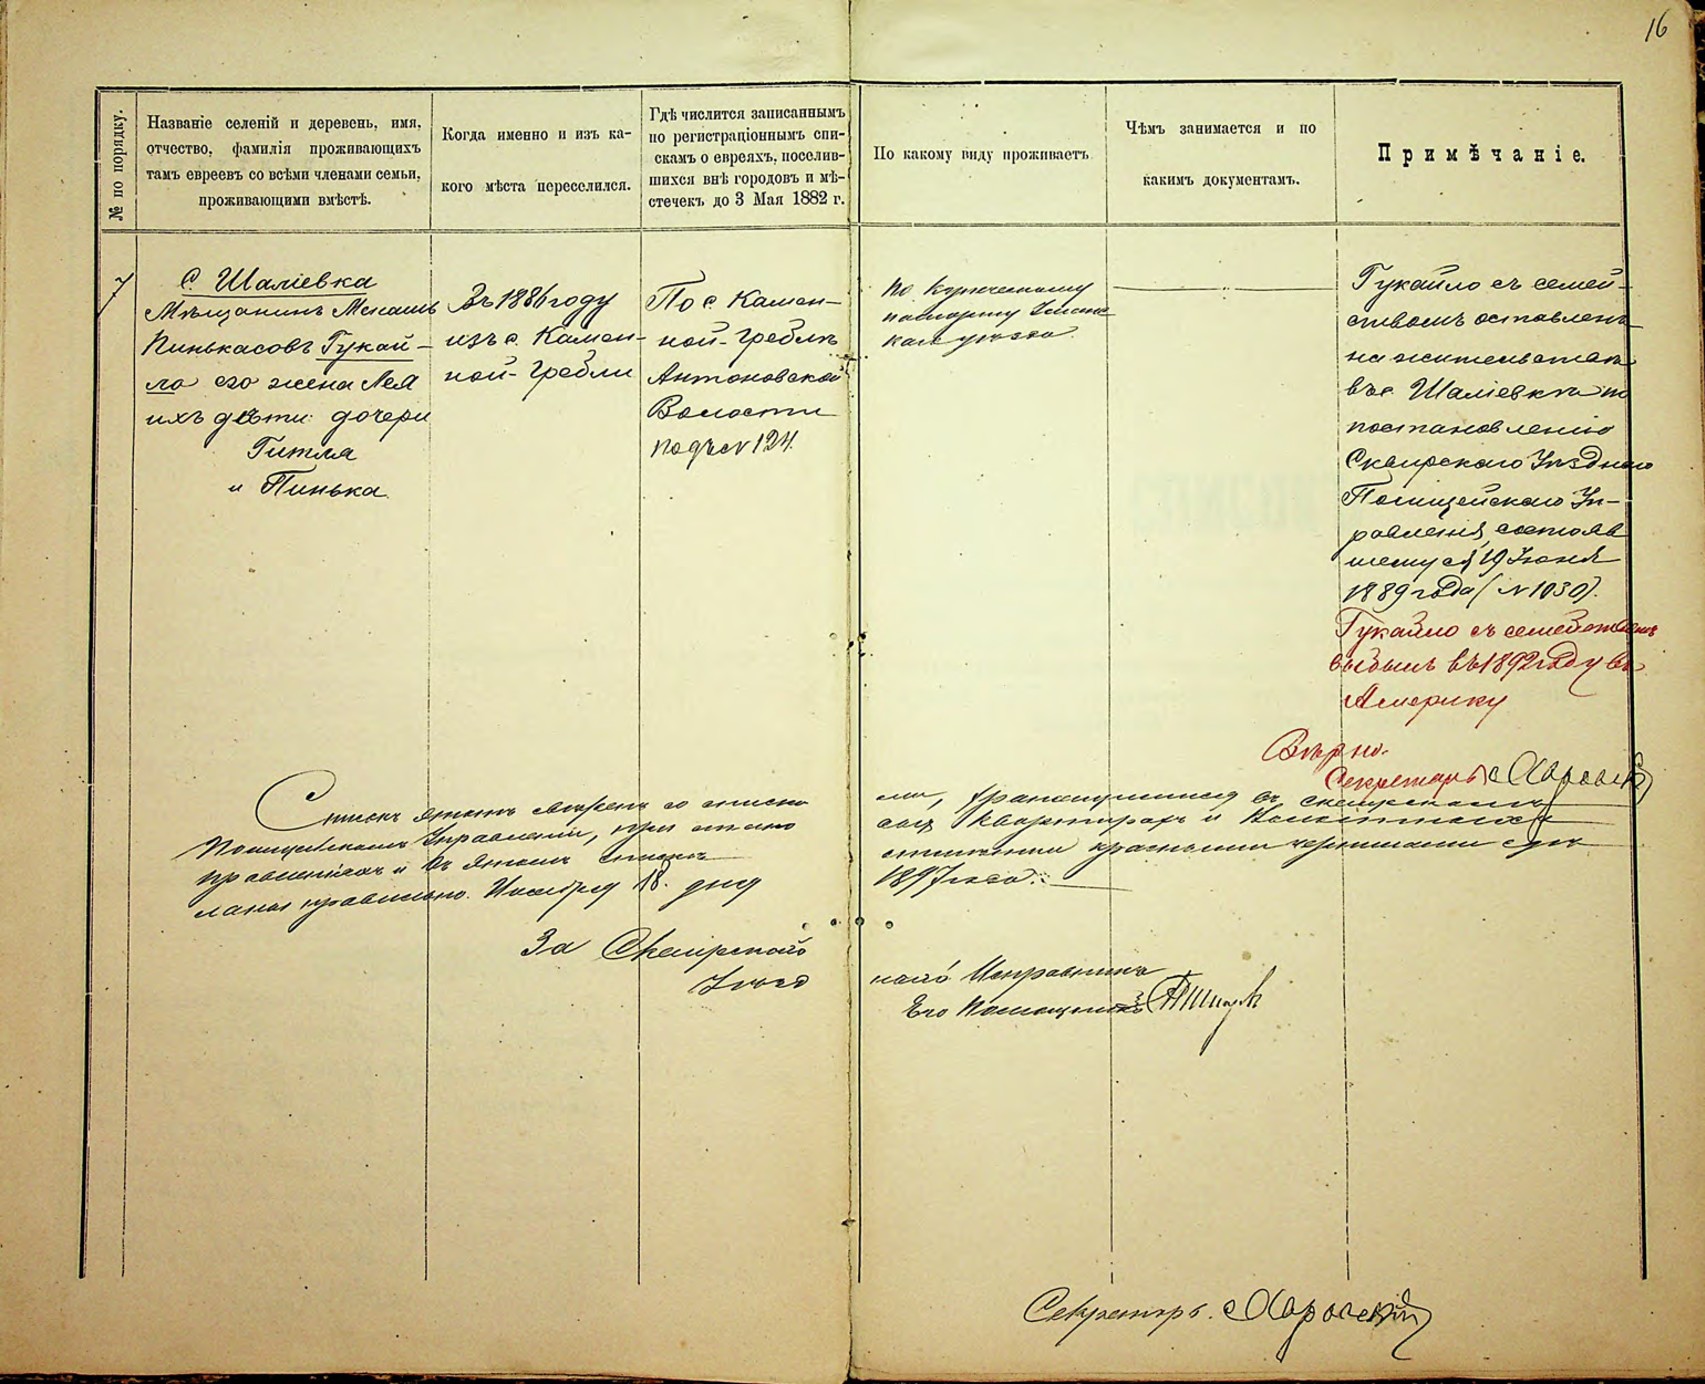 16
№ по порядку.
Названіе селеній и деревень, имя,
отчество, фамилія проживающихъ
тамъ евреевъ со всѣми членами семьи,
проживающими вмѣстѣ.
Когда именно и изъ ка-
кого мѣста переселился.
Гдѣ числится записаннымъ
по регистраціоннымъ спи-
скамъ о евреяхъ, поселив-
шихся внѣ городовъ и мѣ-
стечекъ до 3 Мая 1882 г.
По какому виду проживаетъ
Чѣмъ занимается и по
какимъ документамъ.
Примѣчаніе.
7
С. Шаліевка
Мѣщанинъ
Пинькасовъ Гукай-
ло его жена Лея
ихъ дѣти: дочери
Гитля
и Пинька
Въ 1886 году
изъ с. Камен-
ной-Гребли
По с. Камен-
ной-Греблѣ
Антоновской
Волости
подъ № 124.
по
паспорту
уѣзда.
Гукайло съ семей-
ствомъ оставленъ
на жительствѣ
въ с. Шаліевкѣ по
постановленію
Сквирскаго Уѣзднаго
Полицейскаго Уп-
равленія, состояв
шемуся 19 Іюня
1889 года (№ 1030).
Гукайло съ семействомъ
выбылъ въ 1892 году въ
Америку
Вѣрно.
Секретарь
Списокъ этотъ со
Полицейскомъ Управленіи, при
и въ этомъ спискѣ
правильно. Ноября 18 дня
въ
и
красными чернилами
1897 года.
За Сквирскаго
Уѣзд
наго Исправника
Его Помощникъ
Секретарь.